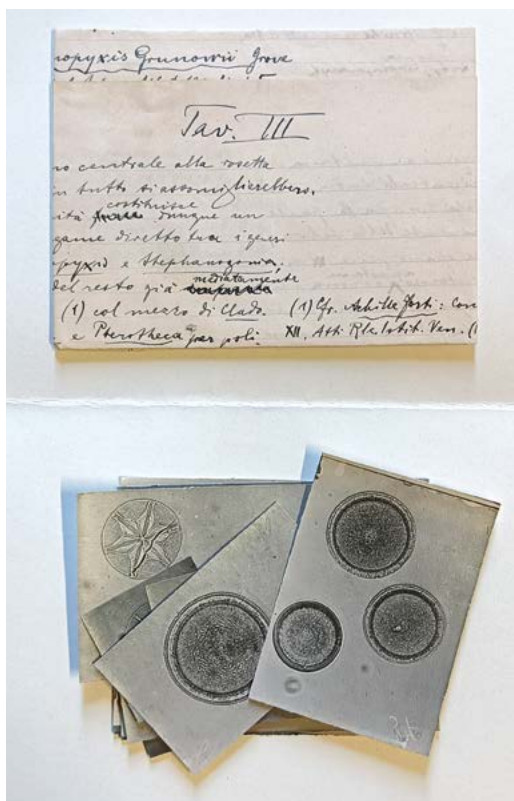 nopyxis Grunowii Grove
Tav. III
no centrale alla rosetta
in tutto si assomiglierebbero,
costituisce
ità dunque un
game diretto tra i generi
opyxis e Stephanogonia,
mediatamente
del resto già
(1) col mezzo di Clado.
e Pterotheca per poli
(1) Cfr. Achille Forti: Con
XII, Atti R. Istit. Ven. (